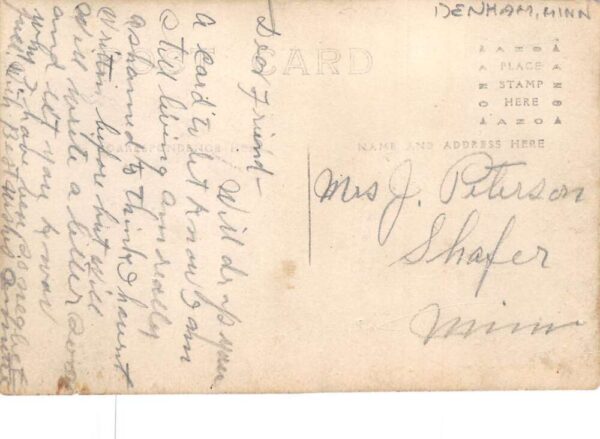 DENHAM, MINN
POST CARD
AZO
PLACE
STAMP
HERE
AZO
CORRESPONDENCE HERE
NAME AND ADDRESS HERE
Dear Friend -
Will drop you
a card to let know I am
still living am really
ashamed to think I havent
written before but will
Will write a letter soon
and let you know
why I have been so neglect
full. With Best wishes
Mrs J. Peterson
Shafer
Minn